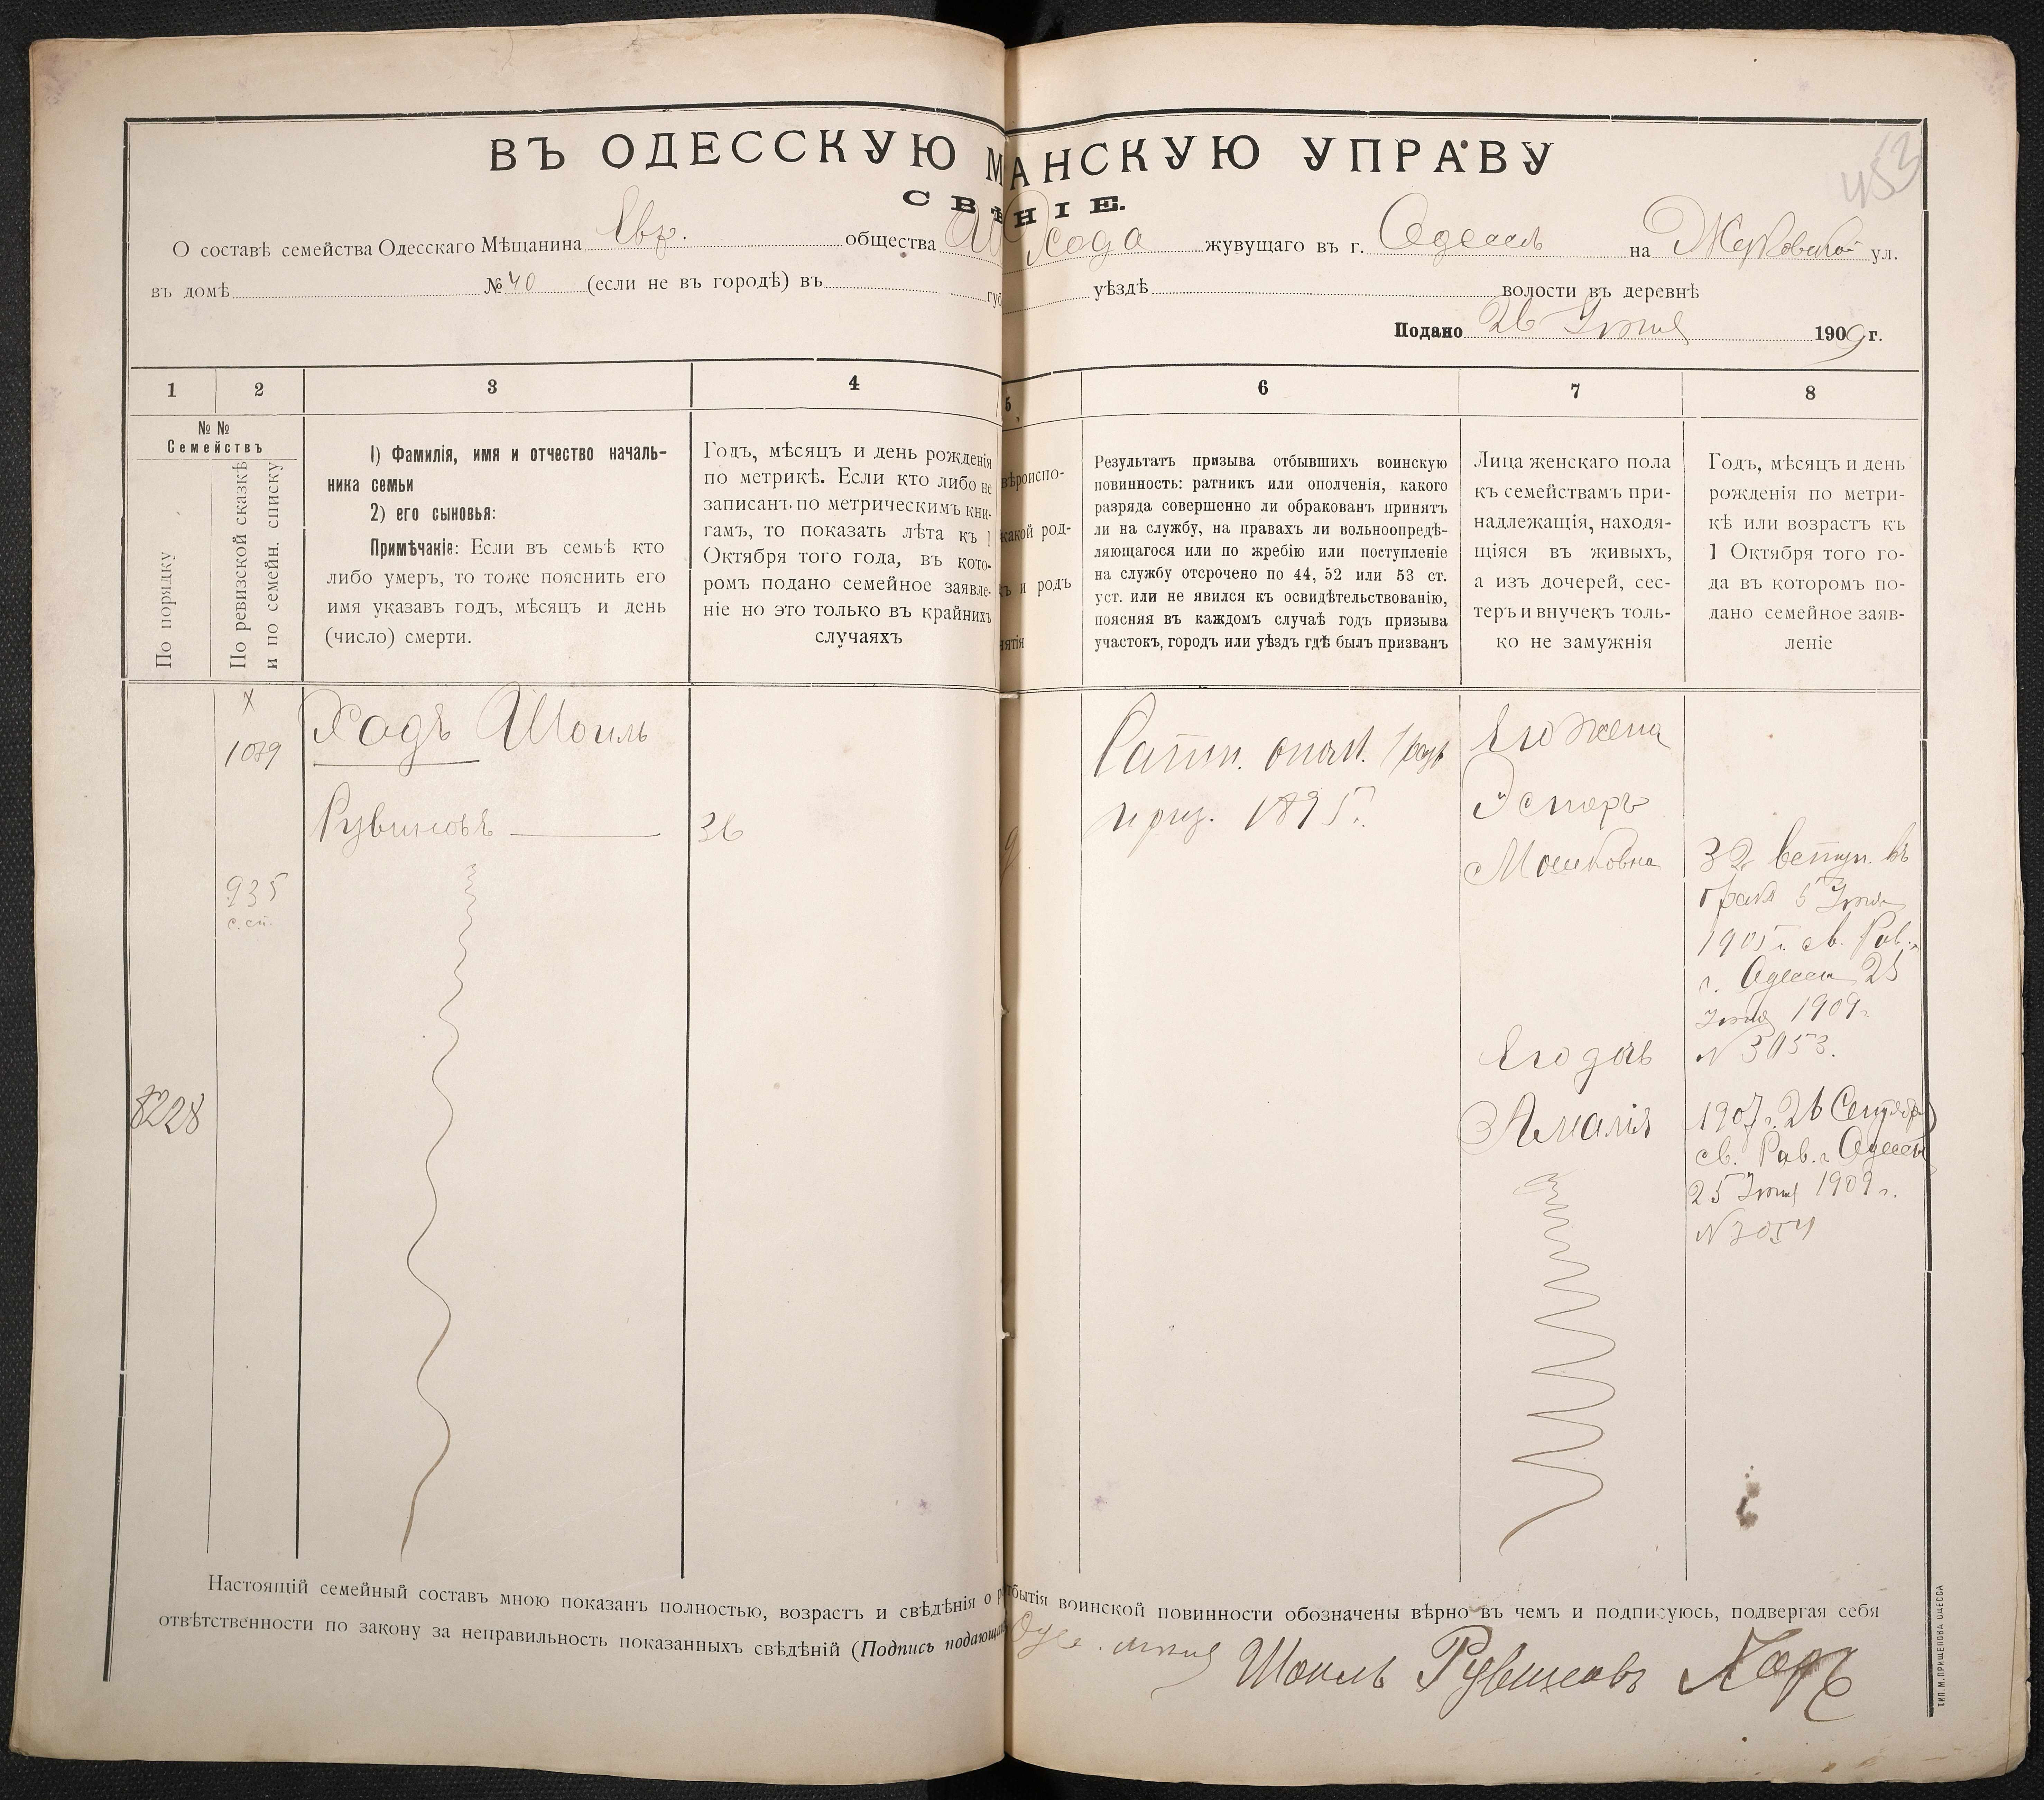 453
ВЪ ОДЕССКУЮ М АНСКУЮ УПРАВУ
СВѢ НІЕ.
О составѣ семейства Одесскаго Мѣщанина Евр. общества Ш Хода жувущаго въ г. Одессѣ на Жуковской ул.
въ домѣ № 40 (если не въ городѣ) въ губ уѣздѣ волости въ деревнѣ
Подано 26 Іюня 1909 г.
1 2 3 4 5 6 7 8
№№
Семействъ
По порядку
По ревизской сказкѣ
и по семейн. списку
1) Фамилія, имя и отчество началь-
ника семьи
2) его сыновья:
Примѣчакіе: Если въ семьѣ кто
либо умеръ, то тоже пояснить его
имя указавъ годъ, мѣсяцъ и день
(число) смерти.
Годъ, мѣсяцъ и день рожденія
по метрикѣ. Если кто либо не
записанъ по метрическимъ кни-
гамъ, то показать лѣта къ 1
Октября того года, въ кото-
ромъ подано семейное заявле-
ніе но это только въ крайнихъ
случаяхъ
вѣроиспо-
какой род-
ъ и родъ
нятія
Результатъ призыва отбывшихъ воинскую
повинность: ратникъ или ополченія, какого
разряда совершенно ли обракованъ принятъ
ли на службу, на правахъ ли вольноопредѣ-
ляющагося или по жребію или поступленіе
на службу отсрочено по 44, 52 или 53 ст.
уст. или не явился къ освидѣтельствованію,
поясняя въ каждомъ случаѣ годъ призыва
участокъ, городъ или уѣздъ гдѣ былъ призванъ
Лица женскаго пола
къ семействамъ при-
надлежащія, находя-
щіяся въ живыхъ,
а изъ дочерей, сес-
теръ и внучекъ толь-
ко не замужнія
Годъ, мѣсяцъ и день
рожденія по метри-
кѣ или возрастъ къ
1 Октября того го-
да въ которомъ по-
дано семейное заяв-
леніе
х
1089
935
с. сп.
8228
Ходъ Шоиль
Рувиновъ
36
Ратн. опол. 1 разр
приз. 1895 г.
Его жена
Эстеръ
Мошковна
Его дочь
Амалія
32 вступ. въ
бракъ 5 Іюня
1905 г. св. Рав.
г. Одессы 25
Іюня 1909 г.
№ 3053.
1907 г. 26 Сентября
св. Рав. г. Одессы
25 Іюня 1909 г.
№ 3054
Настоящій семейный составъ мною показанъ полностью, возрастъ и свѣдѣнія о р тбытія воинской повинности обозначены вѣрно въ чемъ и подписуюсь, подвергая себя
отвѣтственности по закону за неправильность показанныхъ свѣдѣній (Подпись подающаго
Шоиль Рувиновъ Ходъ
ТИП. М. ПРИЩЕПОВА ОДЕССА